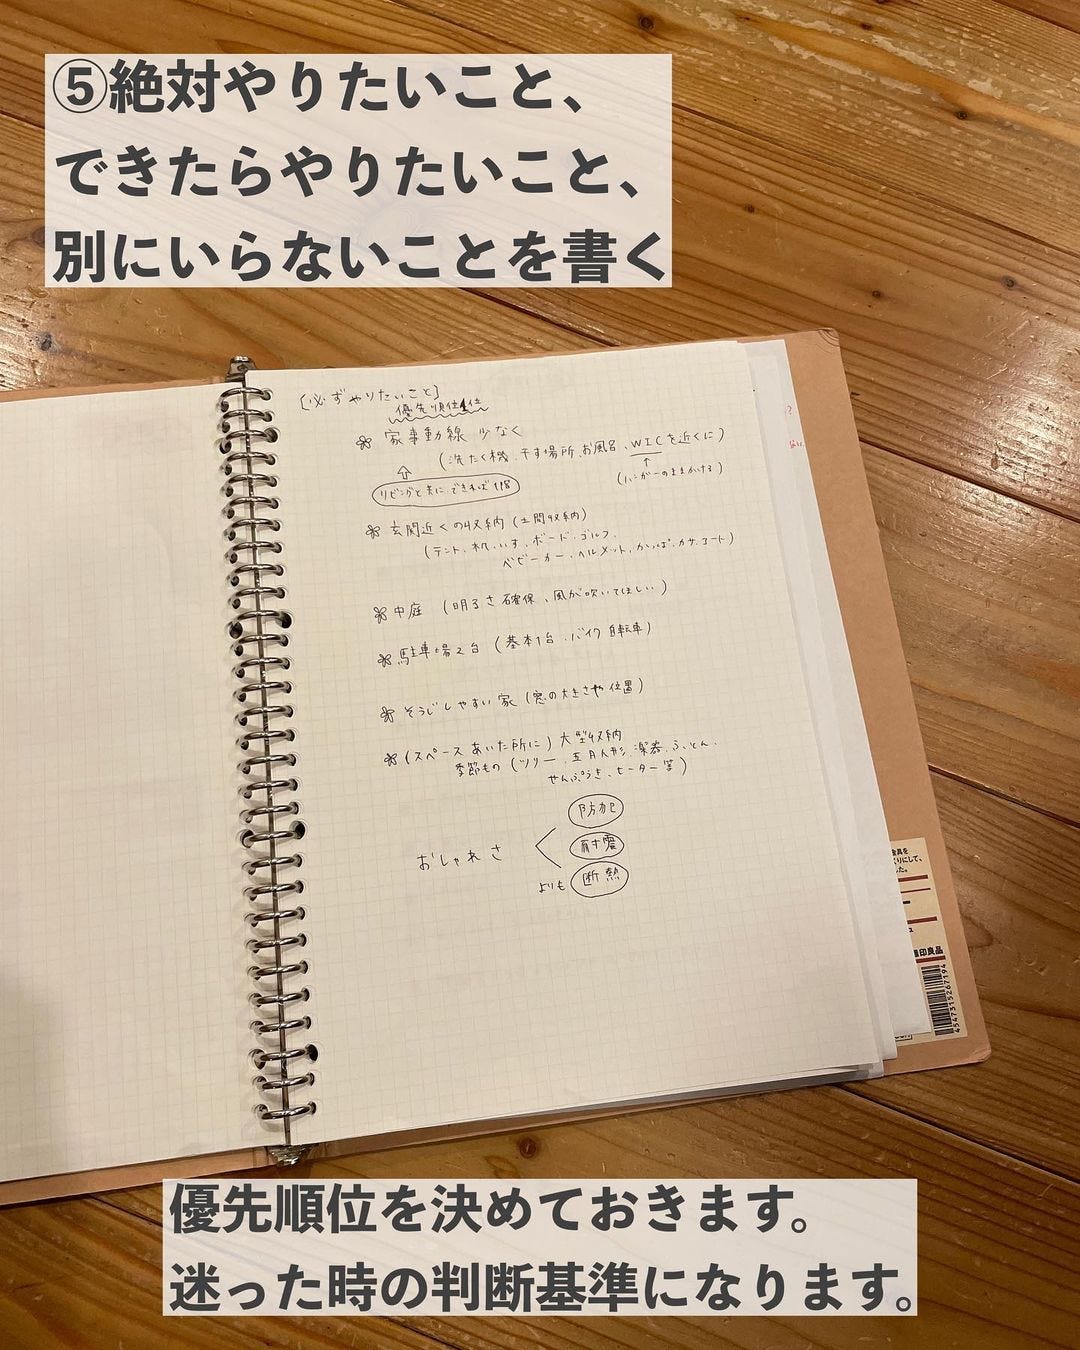 ⑤絶対やりたいこと、
できたらやりたいこと、
別にいらないことを書く
[必ずやりたいこと]
優先順位1位
家事動線 少なく
(洗たく機、干す場所、お風呂、WICを近くに)
リビングと共に できれば1階
(ハンガーのままかける)
玄関近くの収納 (土間収納)
(テント、机、いす、ボード、ゴルフ、
ベビーカー、ヘルメット、かっぱ、カサ、コート)
中庭 (明るさ確保、風が吹いてほしい)
駐車場2台 (基本1台、バイク 自転車)
そうじしやすい家 (窓の大きさや位置)
(スペースあいた所に) 大型収納
季節もの (ツリー、五月人形、楽器、ふとん、
せんぷうき、ヒーター等)
防犯
おしゃれさ < 耐震
よりも 断熱
金具を
くりにして、
した。
無印良品
4547315267194
優先順位を決めておきます。
迷った時の判断基準になります。